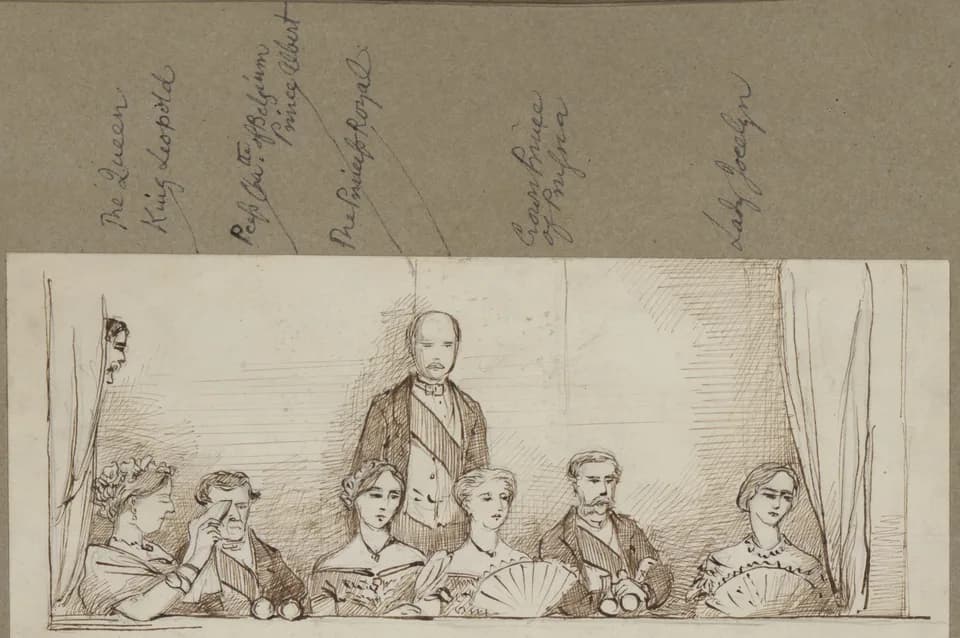 The Queen
King Leopold
Pcess Chtte. of Belgium
Prince Albert
The Princess Royal
Crown Prince
of Prussia
Lady Jocelyn